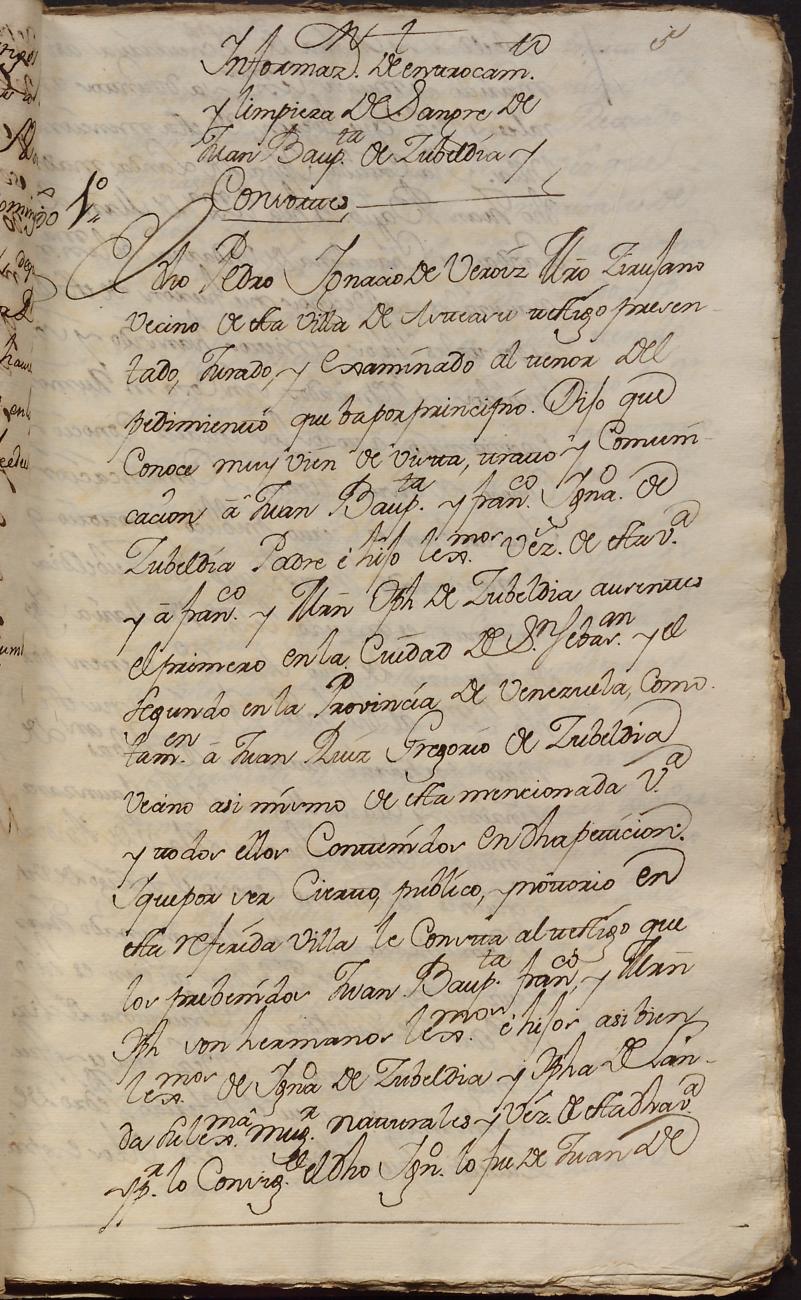 Informaz.n de entrocam.to
y limpieza de Sangre de
Juan Baup.ta de Zubeldia y
Consortes,
1º
Dho Pedro Ignacio de Veroiz Mro Zirujano
vecino de esta villa de testigo presen-
tado, Jurado, y Examinado al tenor del
pedimiento que ba por principio. Dijo que
Conoce muy vien de vista, trato y Comuni-
cacion â Juan Baup.ta y fran.co Ign.o de
Zubeldia Padre è hijo lexmos. vez. de esta v.a
y â fran.co y Mrn Jph de Zubeldia ausentes
el primero en la Ciudad de S.n Sebas.an y el
segundo en la Provincia de Venezuela, como
tam.en â Juan Ruiz Gregorio de Zubeldia
vecino asi mismo de esta mencionada V.a
y todos ellos Contenidos en dha peticion:
I que por ser Cierto, publico, y notorio en
esta referida villa le Consta al testigo que
los prebenidos Juan Baup.ta fran.co y Mrn
Jph son hermanos lexmos. è hijos asi bien
lexmos de Ign.o de Zubeldia y Jpha de Lan-
da su lex.ma mug.r naturales y vez. de esta dha v.a
y p.r lo Consig.te el dho Ign.o lo fue de Juan de